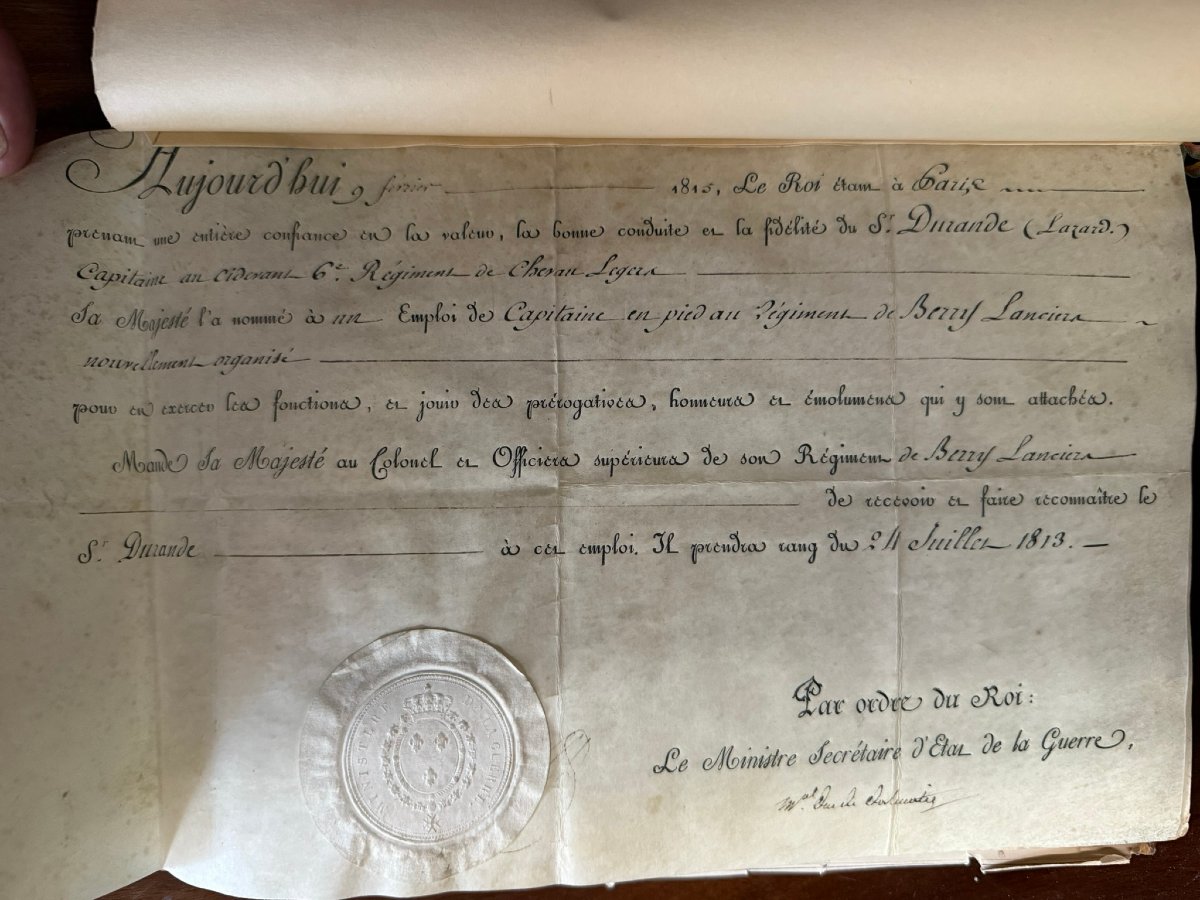 Aujourd'hui 9 février 1815, Le Roi étant à Paris
prenant une entière confiance en la valeur, la bonne conduite et la fidélité du Sr. Durande (Lazard.)
Capitaine au cidevant 6e. Régiment de Chevau Legers
Sa Majesté l'a nommé à un Emploi de Capitaine en pied au Régiment de Berry Lanciers
nouvellement organisé
pour en exercer les fonctions, et jouir des prérogatives, honneurs et émolumens qui y sont attachés.
Mande Sa Majesté au Colonel et Officiers supérieurs de son Régiment de Berry Lanciers
de recevoir et faire reconnaître le
Sr Durande à cet emploi. Il prendra rang du 24 Juillet 1813.
MINISTERE DE LA GUERRE.
Par ordre du Roi:
Le Ministre Secrétaire d'Etat de la Guerre,
Mal Duc de Dalmatie